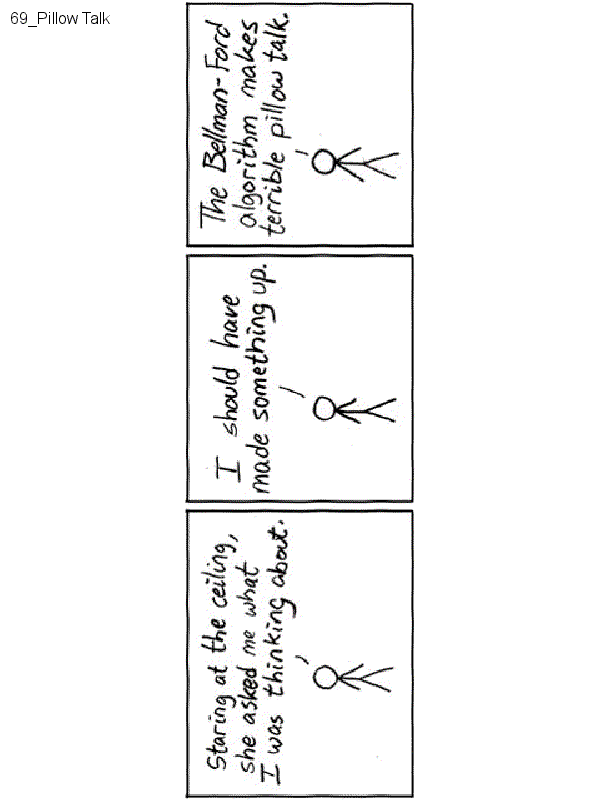 69_Pillow Talk
Staring at the ceiling,
she asked me what
I was thinking about.
I should have
made something up.
The Bellman-Ford
algorithm makes
terrible pillow talk.